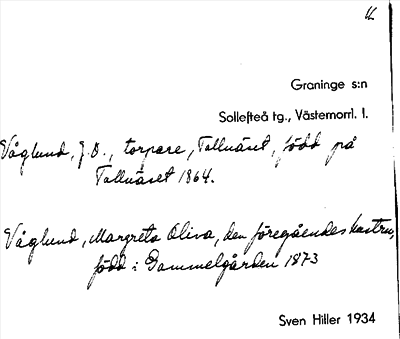 16
Graninge s:n
Sollefteå tg., Västernorrl. l.
Våglund, J. O., torpare, Tallnäset, född på
Tallnäset 1864.
Våglund, Margreta Oliva, den föregåendes hustru,
född i Gammelgården 1873
Sven Hiller 1934